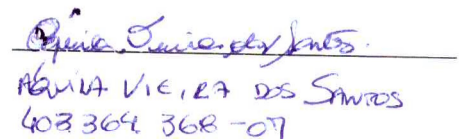 Áquila Vieira dos Santos.
ÁQUILA VIEIRA DOS SANTOS
403 364 368-07